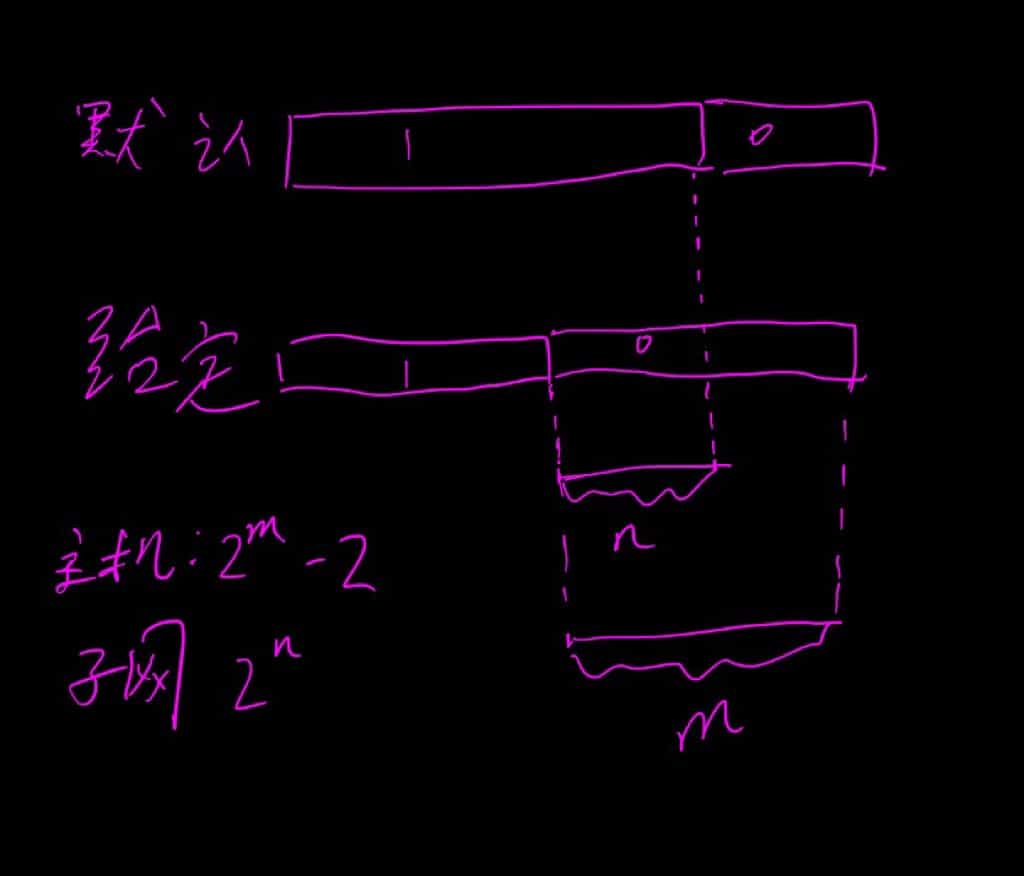 默认 1 0
给定 1 0
n
主机:2^m-2
子网 2^n
m